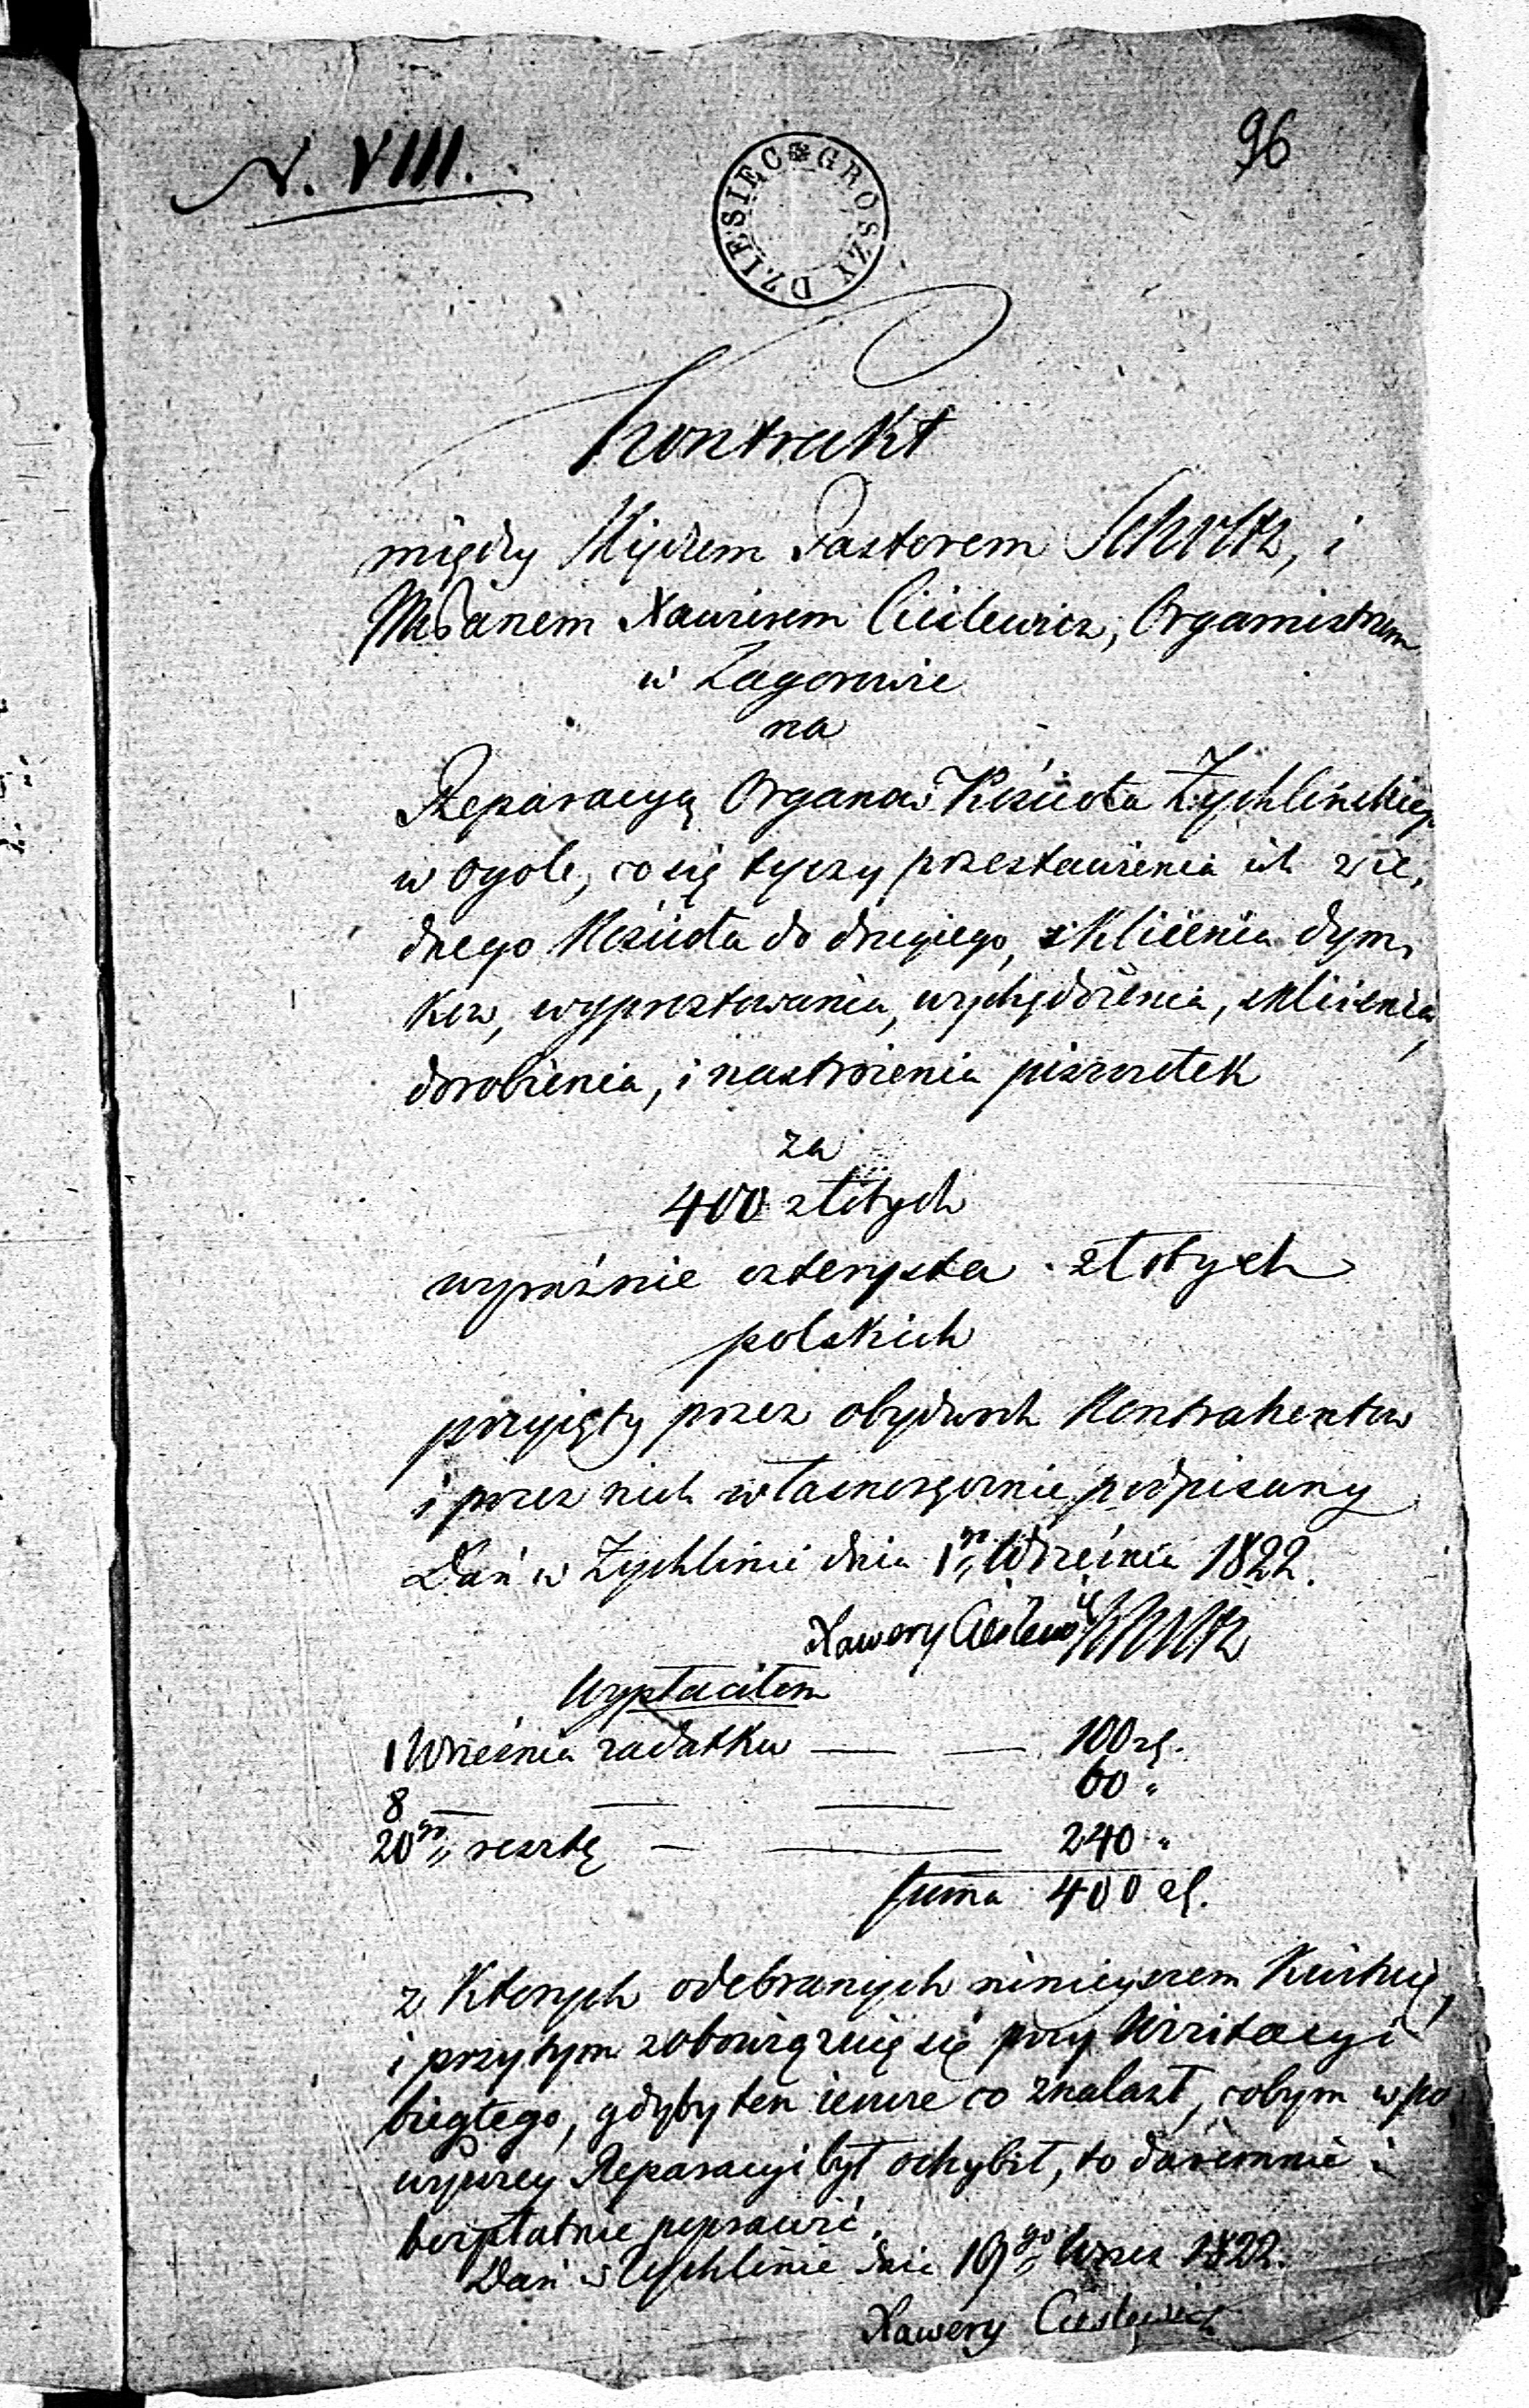 N. VIII.
96
DZIESIĘC GROSZY
Kontrakt
między Xiędzem Pastorem Schultz, i
Panem Xawerem Cieślewicz, Organistrem
w Zagorowie
na
Reparacyą Organow Kościoła Żychlińskiego
w ogole, co się tyczy przestawienia ich z ie,
dnego Kościoła do drugiego, sklijenia dym,
kow, wyprostowania, wychędożenia, sklijenia,
dorobienia, i nastroienia piszczałek
za
400 złotych
wyraźnie czterysta złotych
polskich
przyięty przez obydwoch Kontrahentow
i przez nich własnoręcznie podpisany
Dań w Żychlinie dnia 1go Września 1822.
Xawery Cieślewicz Schultz
Wypłaciłem
1 Września zadatku — — 100 zł.
8 — — — 60 "
20go resztę — — 240 "
Summa 400 zł.
z Ktorych odebranych ninieyszem Kwituię,
i przytym zobowiązuię się przy Wizitacyi
biegłego, gdyby ten iescze co znalazł, cobym w po
wyższey Reparacyi był ochybił, to daremnie i
bezpłatnie poprawić.
Dań w Żychlinie dnia 19go Wrześ 1822.
Xawery Cieslewicz